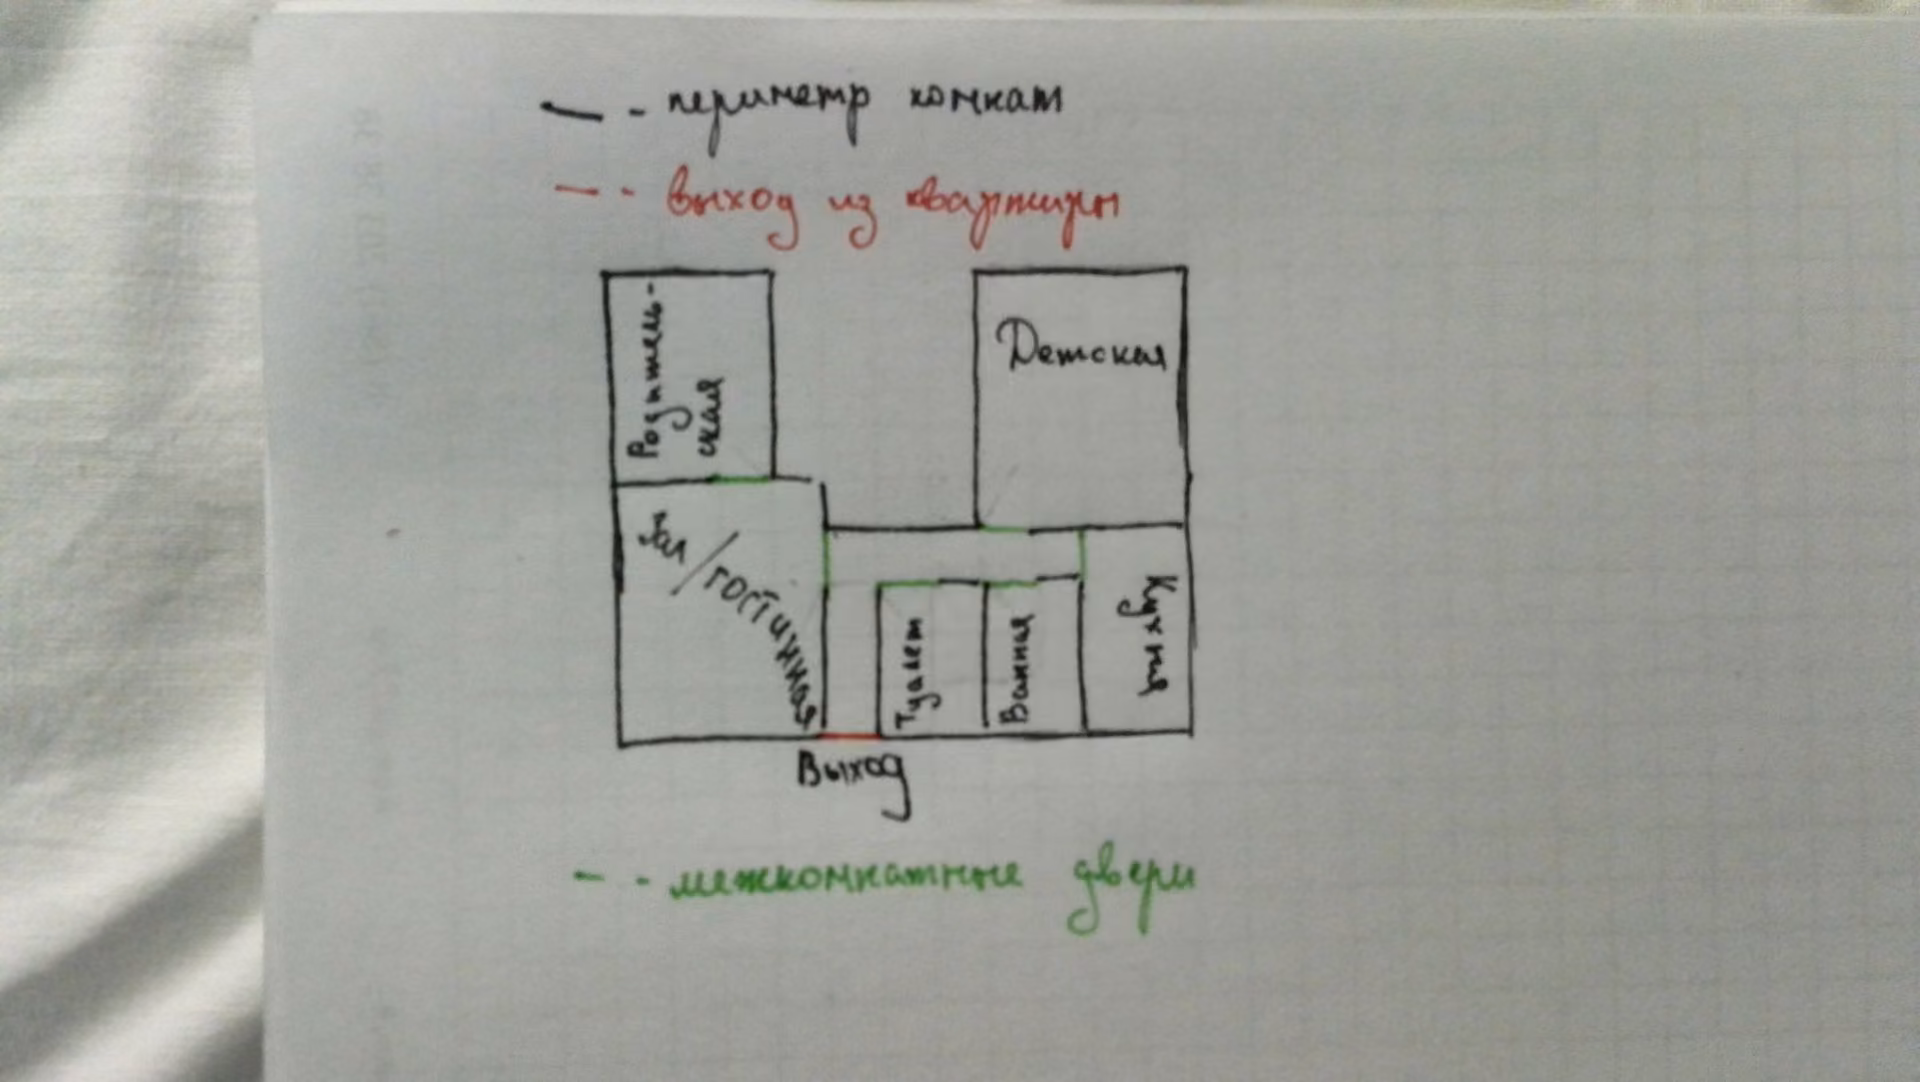 - периметр комнат
- выход из квартиры
Родитель-
ская
Детская
Зал/гостинная
Туалет
Ванная
Кухня
Выход
- межкомнатные двери